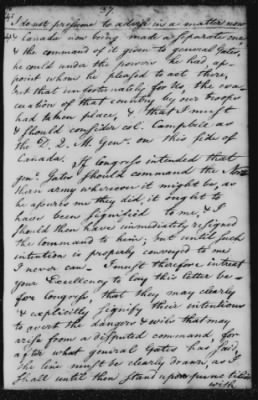 37
I do not presume to advise in a matter now
Canada now being made a separate one,
& the command of it given to general Gates,
he could under the power he had, ap-
point whom he pleased to act there,
but that unfortunately for us, the eva-
cuation of that country by our troops
had taken place, & that I must
& should consider col. Campbell as
the D. Q. M. Genl. on this side of
Canada. If Congress intended that
genl. Gates should command the Nor-
thern army wherever it might be, as
he assures me they did, it ought to
have been signified to me, & I
should then have immediately resigned
the command to him; but until such
intention is properly conveyed to me,
I never can. I must therefore intreat
your Excellency to lay this letter be-
fore Congress, that they may clearly
& explicitly signify their intentions
to avert the dangers & evils that may
arise from a disputed command, for
after what general Gates has said,
the line must be clearly drawn, as I
shall until then stand upon punctilio
with